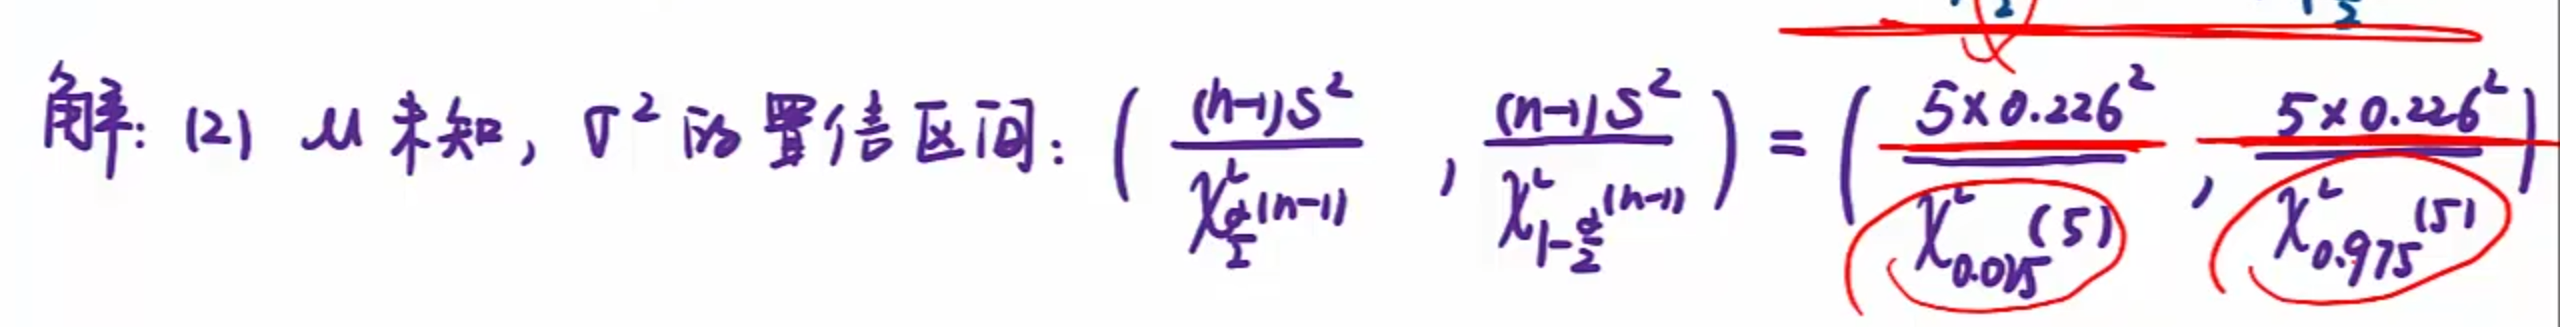 解: (2) μ 未知, σ² 的置信区间: ( (n-1)S² / χ²_{α/2}(n-1) , (n-1)S² / χ²_{1-α/2}(n-1) ) = ( 5×0.226² / χ²_{0.025}(5) , 5×0.226² / χ²_{0.975}(5) )